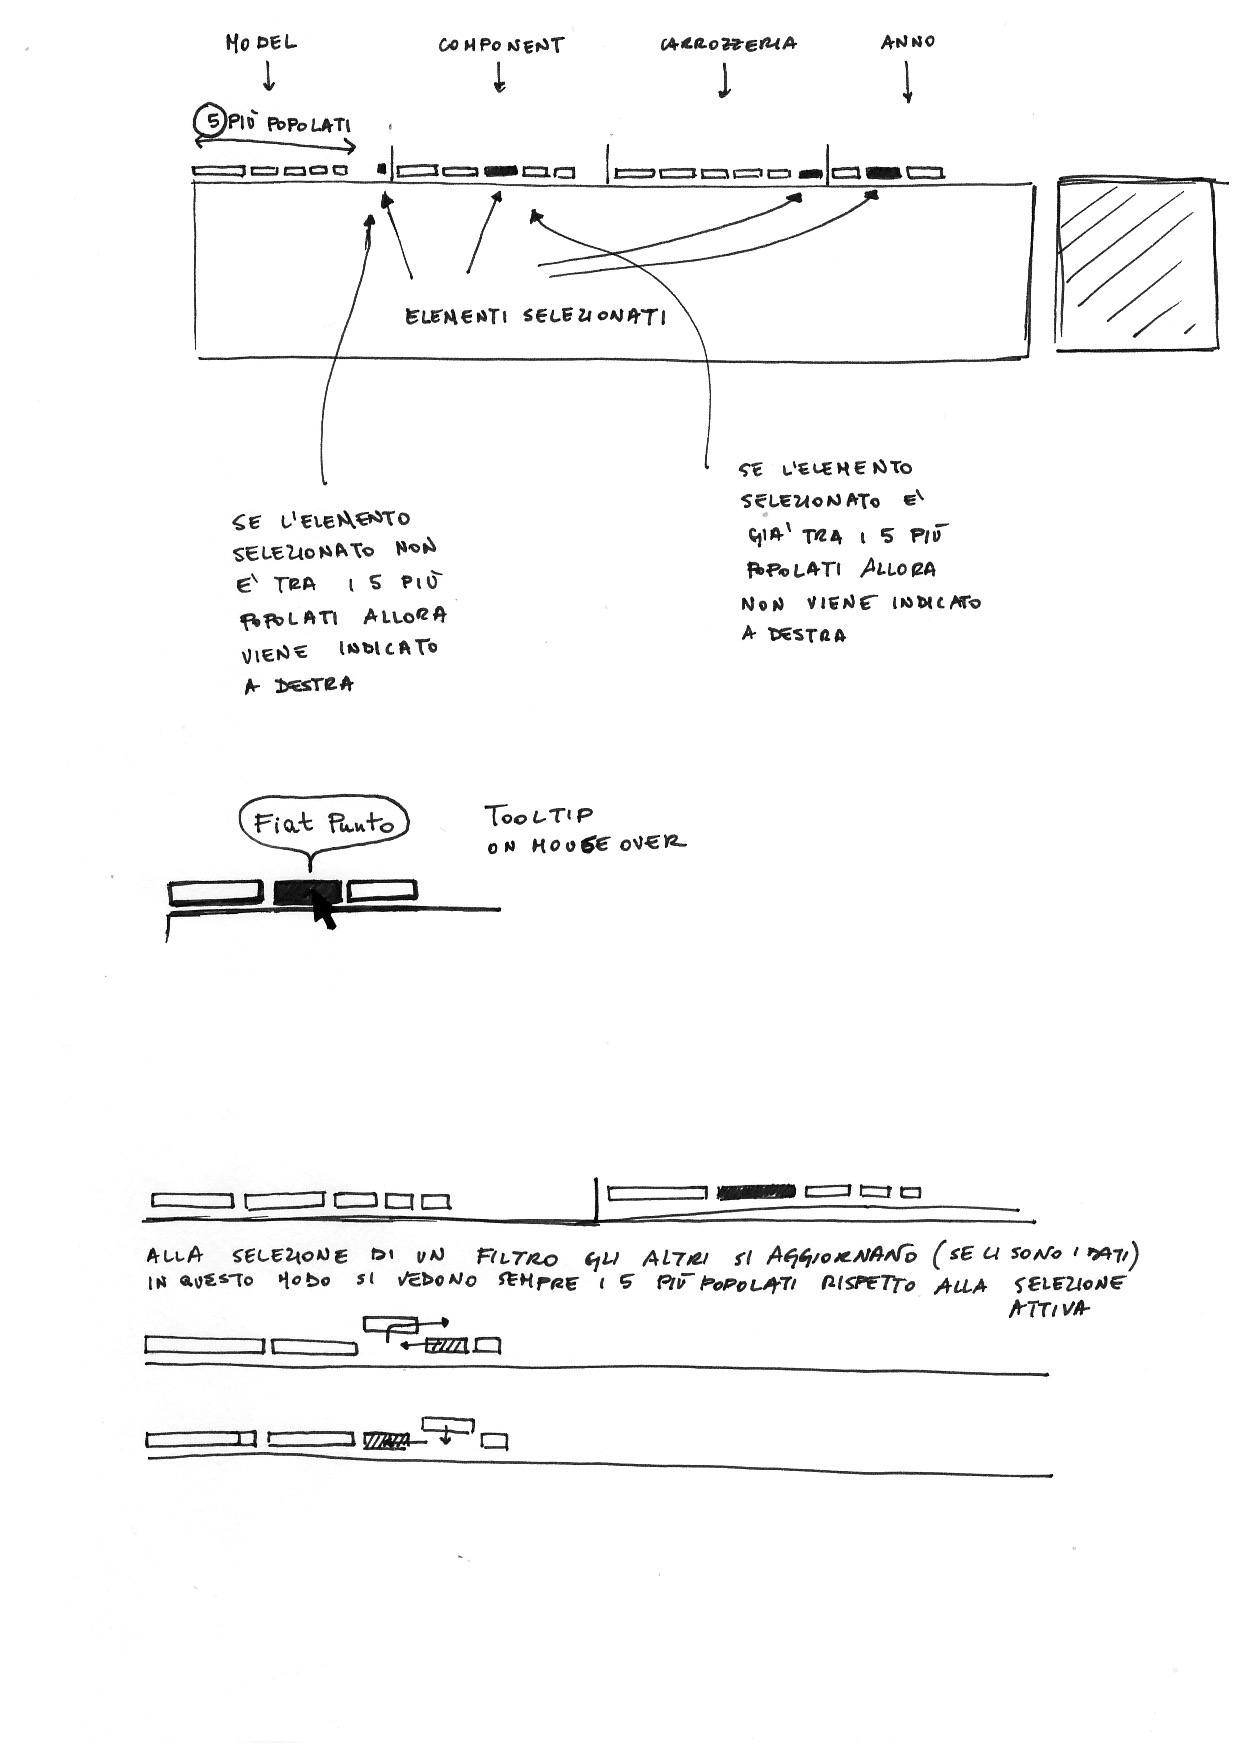 MODEL
COMPONENT
CARROZZERIA
ANNO
5 PIÙ POPOLATI
ELEMENTI SELEZIONATI
SE L'ELEMENTO
SELEZIONATO NON
E' TRA I 5 PIÙ
POPOLATI ALLORA
VIENE INDICATO
A DESTRA
SE L'ELEMENTO
SELEZIONATO E'
GIA' TRA I 5 PIÙ
POPOLATI ALLORA
NON VIENE INDICATO
A DESTRA
Fiat Punto
TOOLTIP
ON MOUSE OVER
ALLA SELEZIONE DI UN FILTRO GLI ALTRI SI AGGIORNANO (SE CI SONO I DATI)
IN QUESTO MODO SI VEDONO SEMPRE I 5 PIÙ POPOLATI RISPETTO ALLA SELEZIONE
ATTIVA